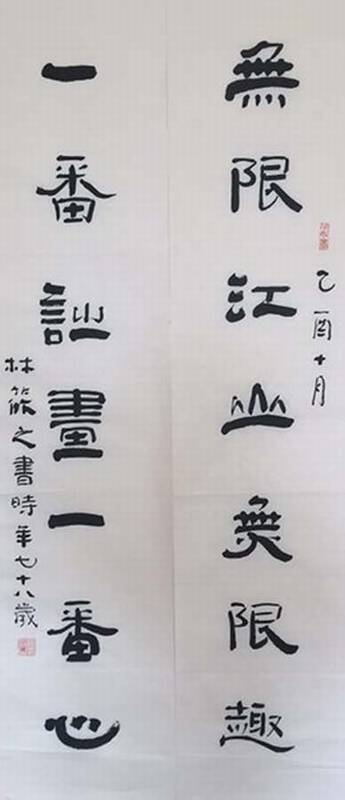 乙酉十月
無限江山無限趣
一番詩畫一番心
林筱之書時年七十八歲